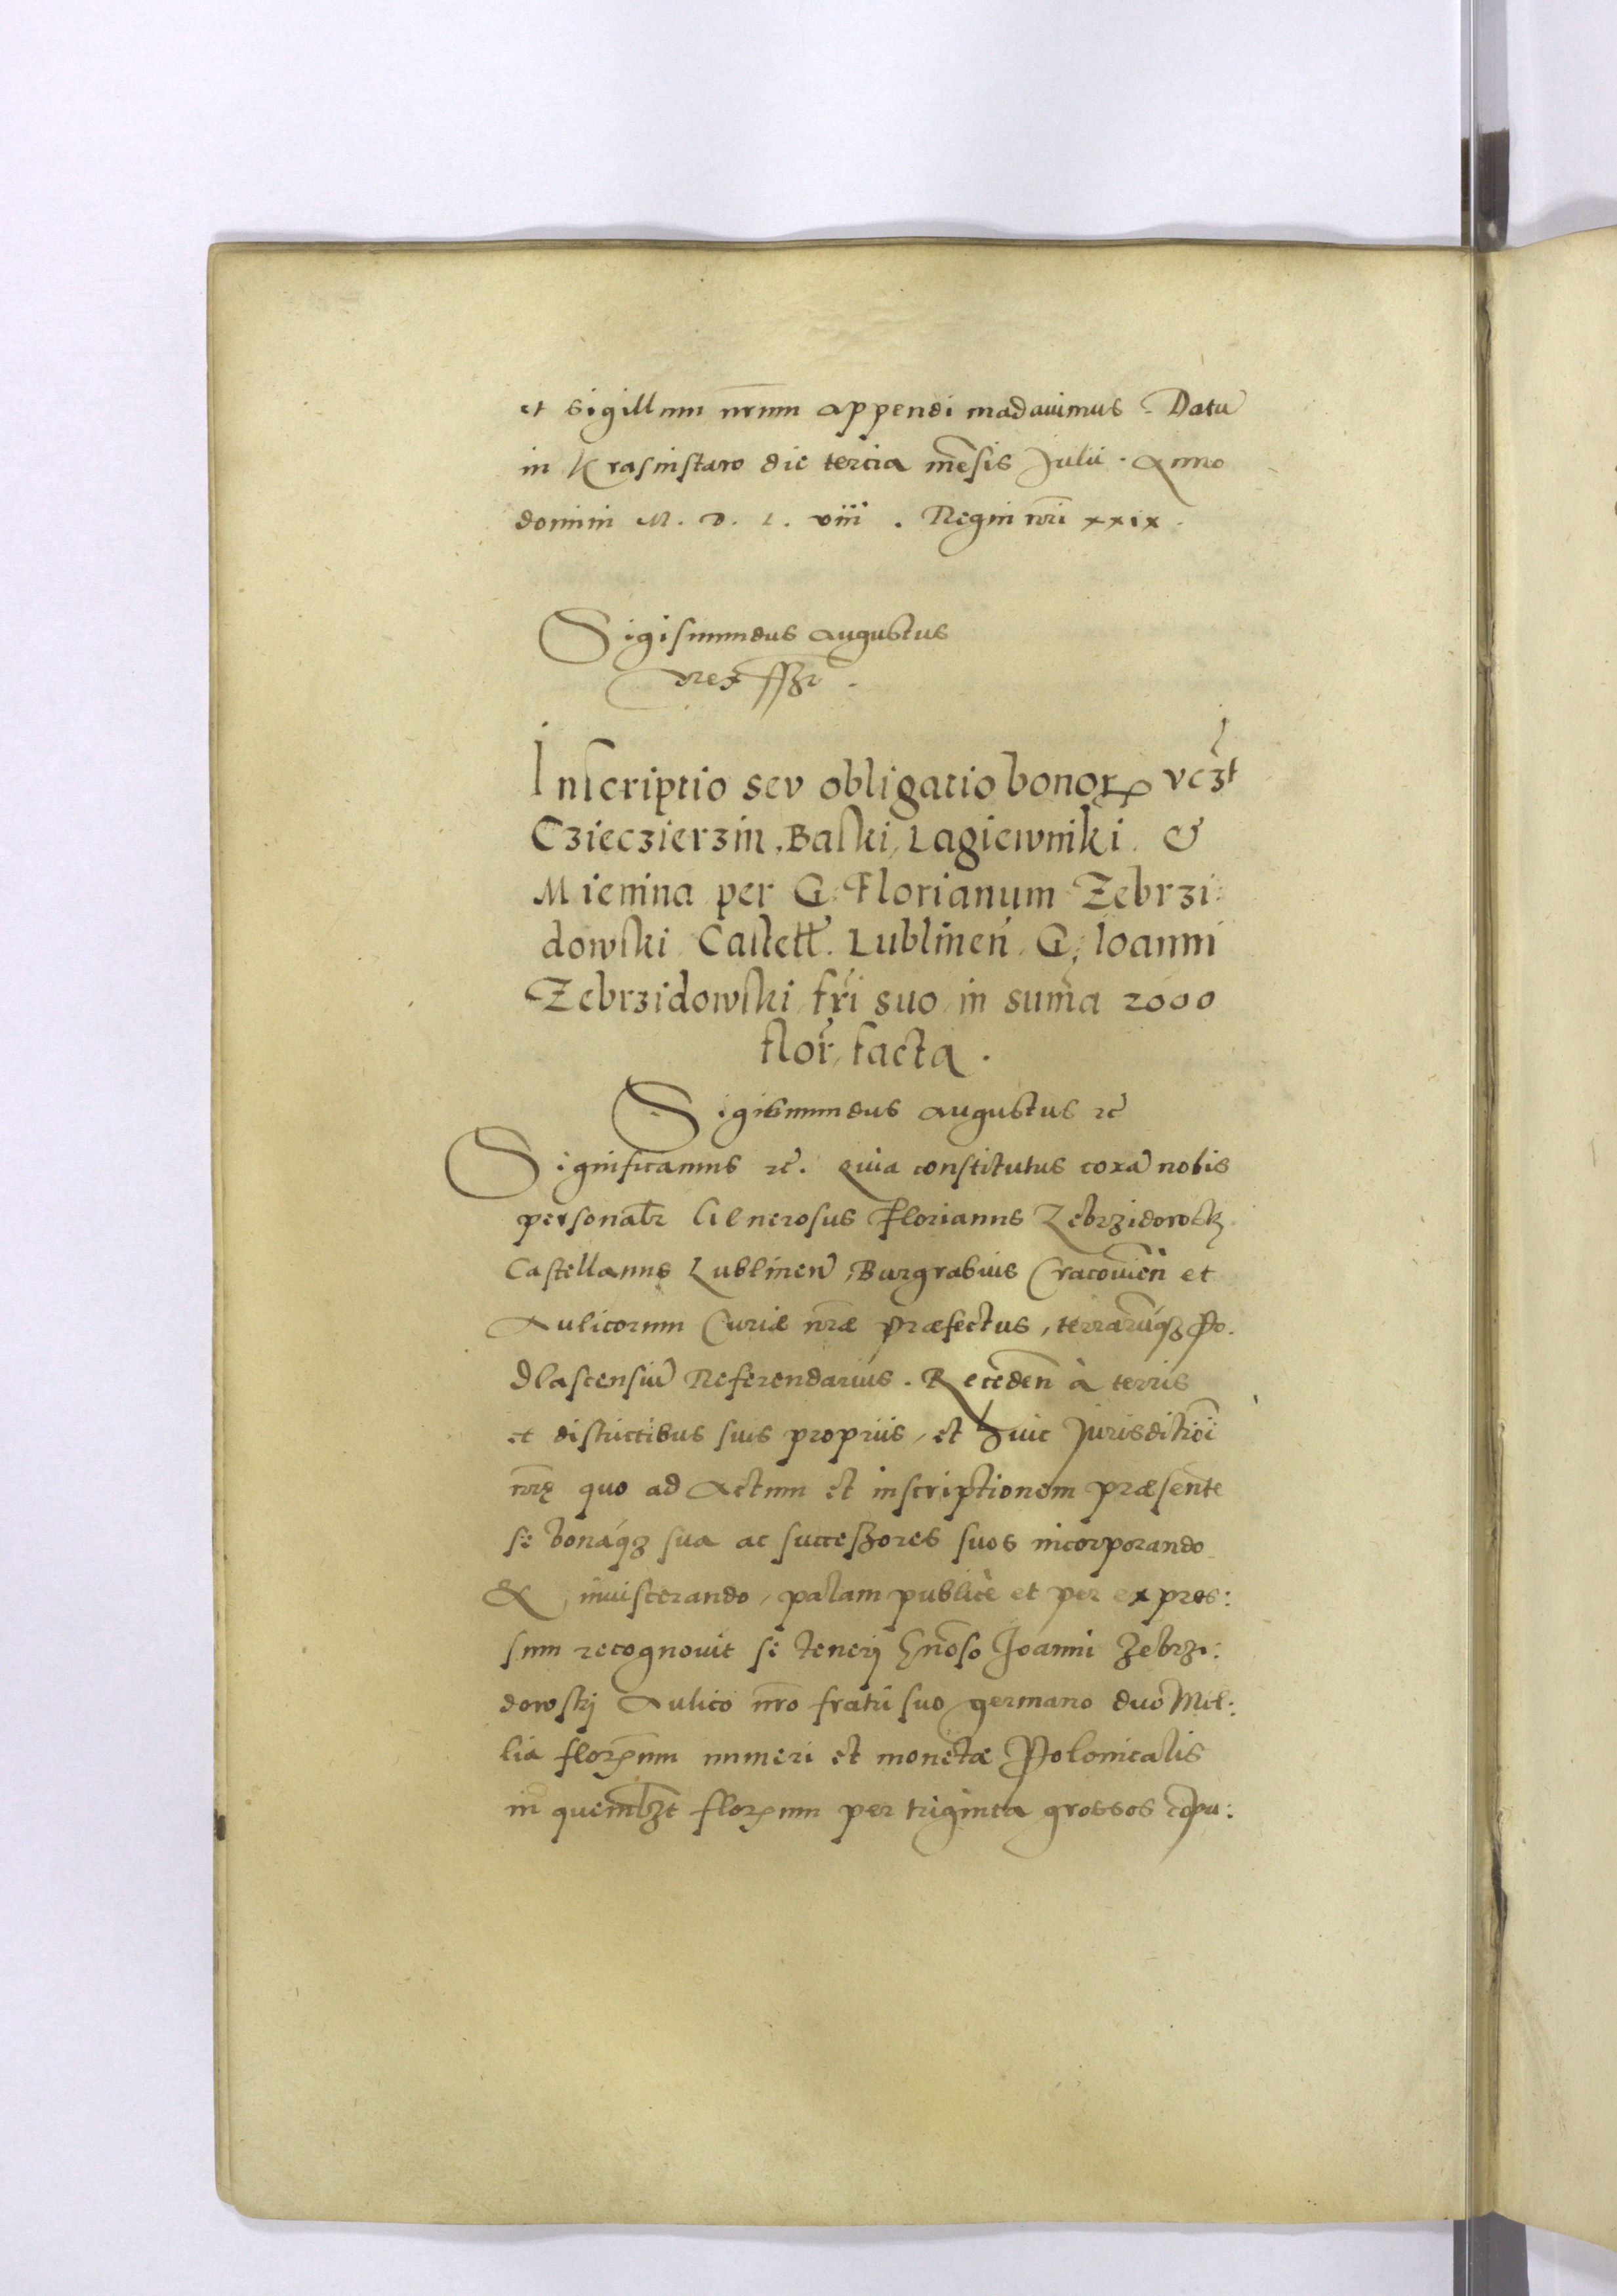 et sigillum nr̄um appendi madauimus. Datu᷉
in Krasnistaw die tercia mēsis Julii. Anno
domini M. D. L. viii. Regni nr̄i xxix.
Sigismundus Augustus
Rex sszt.
Inscriptio seu obligatio bonoꝝ vcꝫt
Czieczierzin, Baski, Lagiewniki. &
Mienina per G. Florianum Zebrzi:
dowski Castell. Lublineń. G. Ioanni
Zebrzidowski fr̄i suo in sum̄a 2000
flor̄. facta.
Sigismundus Augustus ⁊c̄
Significamus ⁊c̄. Quia constitutus corā nobis
personalr̄ Generosus Florianus Zebrzidowskj
Castellanus Lublinen̄, Burgrabius Cracouien̄ et
Aulicorum Curiæ nr̄æ præfectus, terrarūqꝫ Po.
dlascensiū Referendarius. Receden̄ à terris
et districtibus suis propriis, et huic Jurisditioī
nr̄ę quo ad Actum et inscriptionem præsente
se bonáqꝫ sua ac successores suos incorporando
& inuiscerando, palam publicè et per expres:
sum recognouit se tenerj Gn̄oso Joanni Zebrzi:
dowskj Aulico nr̄o fratri suo germano duo Mil:
lia floꝝenum numeri et monetæ Polonicalis
in quemlꝫt floꝝenum per triginta grossos cōpu: